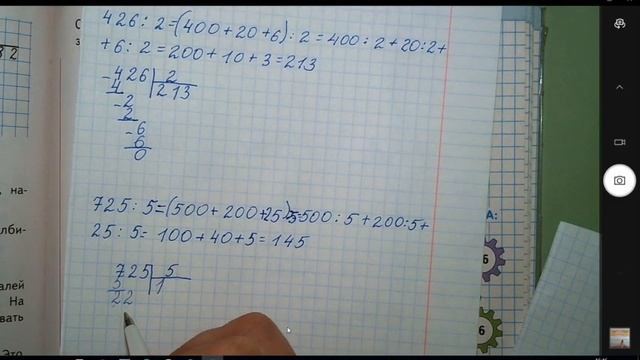 426 : 2 = (400 + 20 + 6) : 2 = 400 : 2 + 20 : 2 +
+ 6 : 2 = 200 + 10 + 3 = 213
- 426 | 2
4 | 213
- 2
2
- 6
6
0
725 : 5 = (500 + 200 + 25) : 5 = 500 : 5 + 200 : 5 +
25 : 5 = 100 + 40 + 5 = 145
725 | 5
5 | 1
22
32
на-
алей
На
вать
Это
А:
6
6